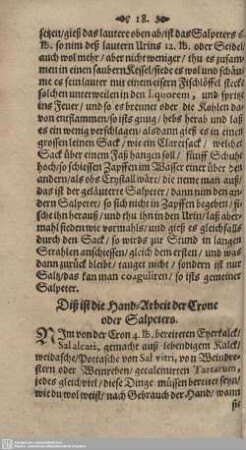 18.
setzen/gieß das lautere oben ab/ist das Salpeters 6.
lb. so nim deß lautern Urins 12. lb. oder Seidel
auch wol mehr/aber nicht weniger/thu es zusam-
men in einen saubern Kessel/siede es wol und schäu-
me es fein lauter mit einem eisern Fischlöffel/stecke
solchen unterweilen in den liquorem, und spritz
ins Feuer/und so es brennet oder die Kohlen da-
von entflammen/so ists gnug/hebs herab und laß
es ein wenig verschlagen/alsdann gieß es in einen
grossen leinen Sack/wie ein Claretsack/welcher
Sack über einem Faß hangen soll/fünff Schuh
hoch/so schiessen Zapffen im Wasser einer über den
andern/als obs Crystall wär/die neme man auß/
das ist der geläuterte Salpeter/dann nim den an-
dern Salpeter/so sich nicht in Zapffen begeben/fi-
sche ihn herauß/und thu ihn in den Urin/laß aber-
mahl sieden wie vormahls/und gieß es gleichfalls
durch den Sack/so wirds zur Stund in langen
Strahlen anschiessen/gleich dem ersten/und was
dann zurück bleibt/tauget nicht/sondern ist nur
Saltz/das kan man coaguliren/so ists gemeiner
Salpeter.
Diß ist die Hand/Arbeit der Crone
oder Salpeters.
NIm von der Cron 4. lb. bereiteten Eyerkalck/
Sal alcari, gemacht auß lebendigem Kalck/
weidasche/Pottasche von Sal vitri, von Weindre-
stern oder Weinreben/gecalcinirten Tartarum,
jedes gleichviel/diese Dinge müssen bereitet seyn/
wie du wol weist/nach Gebrauch der Hand/wann
sie